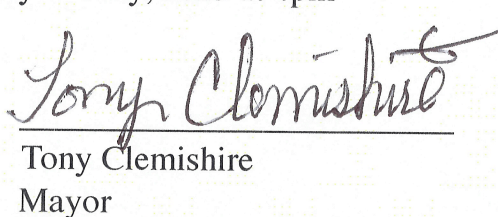 Tony Clemishire
Tony Clemishire
Mayor